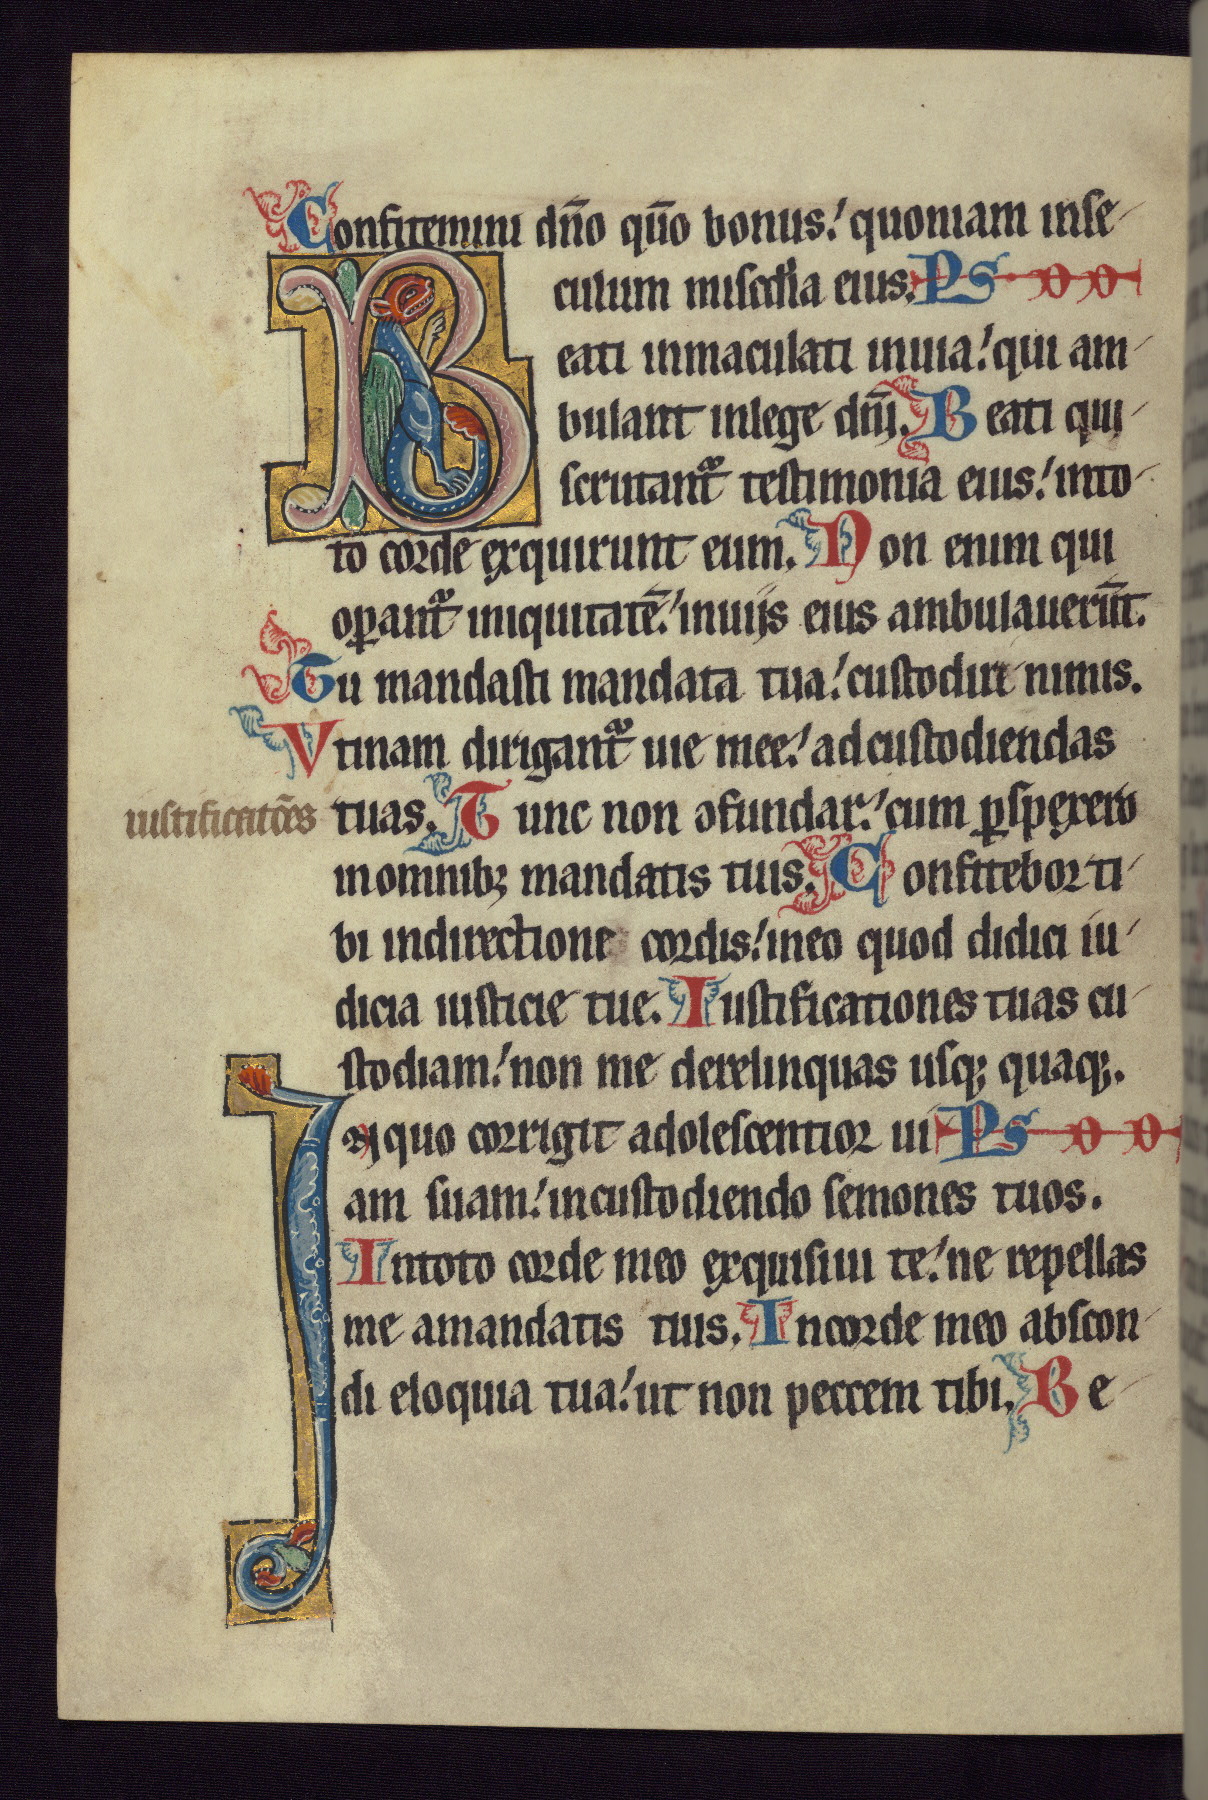 Confitemini dn̄o qūo bonus: quoniam inse-
culum misc̄dia eius. Ps
Beati inmaculati inuia: qui am-
bulant inlege dn̄i. Beati qui-
scrutant᷑ testimonia eius: into-
to corde exquirunt eum. Non enim qui
oꝑant᷑ iniquitatē: inuijs eius ambulauerūt.
Tu mandasti mandata tua: custodiri nimis.
Vtinam dirigant᷑ uie mee: ad custodiendas
iustificatōes tuas. Tunc non ꝯfundar: cum ꝑspexero
in omnibꝫ mandatis tuis. Confitebor ti-
bi indirectione cordis: ineo quod didici iu-
dicia iusticie tue. Iustificationes tuas cu-
stodiam: non me derelinquas usqꝫ quaqꝫ.
In quo corrigit adolescentior ui Ps
am suam: incustodiendo semones tuos.
Intoto corde meo exquisiui te: ne repellas
me amandatis tuis. Incorde meo abscon-
di eloquia tua: ut non peccem tibi. Be-